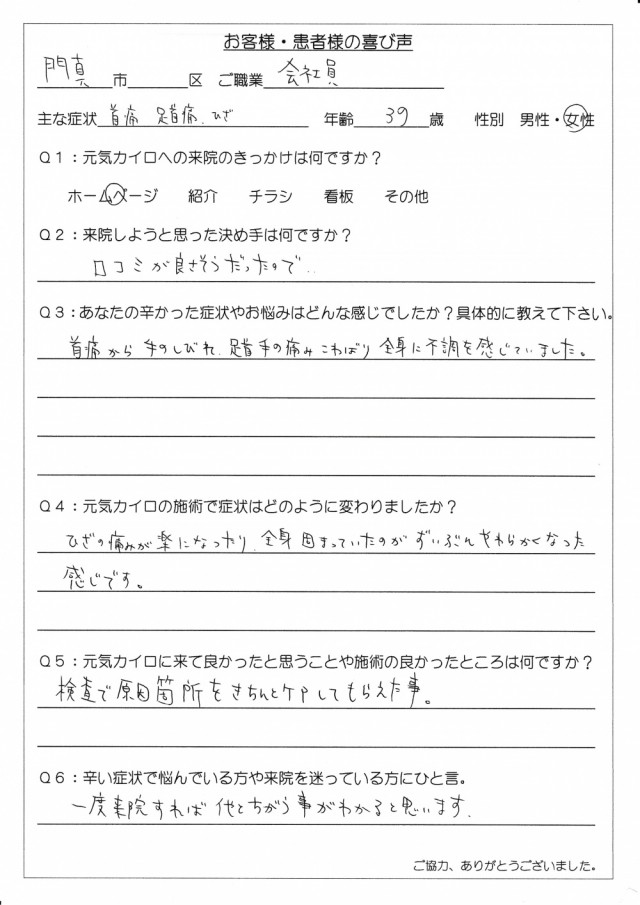 お客様・患者様の喜び声
門真市 区 ご職業 会社員
主な症状 首痛 足首痛、ひざ 年齢 39 歳 性別 男性・女性
Q1：元気カイロへの来院のきっかけは何ですか？
ホームページ 紹介 チラシ 看板 その他
Q2：来院しようと思った決め手は何ですか？
口コミが良さそうだったので..
Q3：あなたの辛かった症状やお悩みはどんな感じでしたか？具体的に教えて下さい。
首痛から手のしびれ、足首手の痛みこわばり全身に不調を感じていました。
Q4：元気カイロの施術で症状はどのように変わりましたか？
ひざの痛みが楽になったり、全身固まっていたのがずいぶんやわらかくなった
感じです。
Q5：元気カイロに来て良かったと思うことや施術の良かったところは何ですか？
検査で原因箇所をきちんとケアしてもらえた事。
Q6：辛い症状で悩んでいる方や来院を迷っている方にひと言。
一度来院すれば他とちがう事がわかると思います.
ご協力、ありがとうございました。